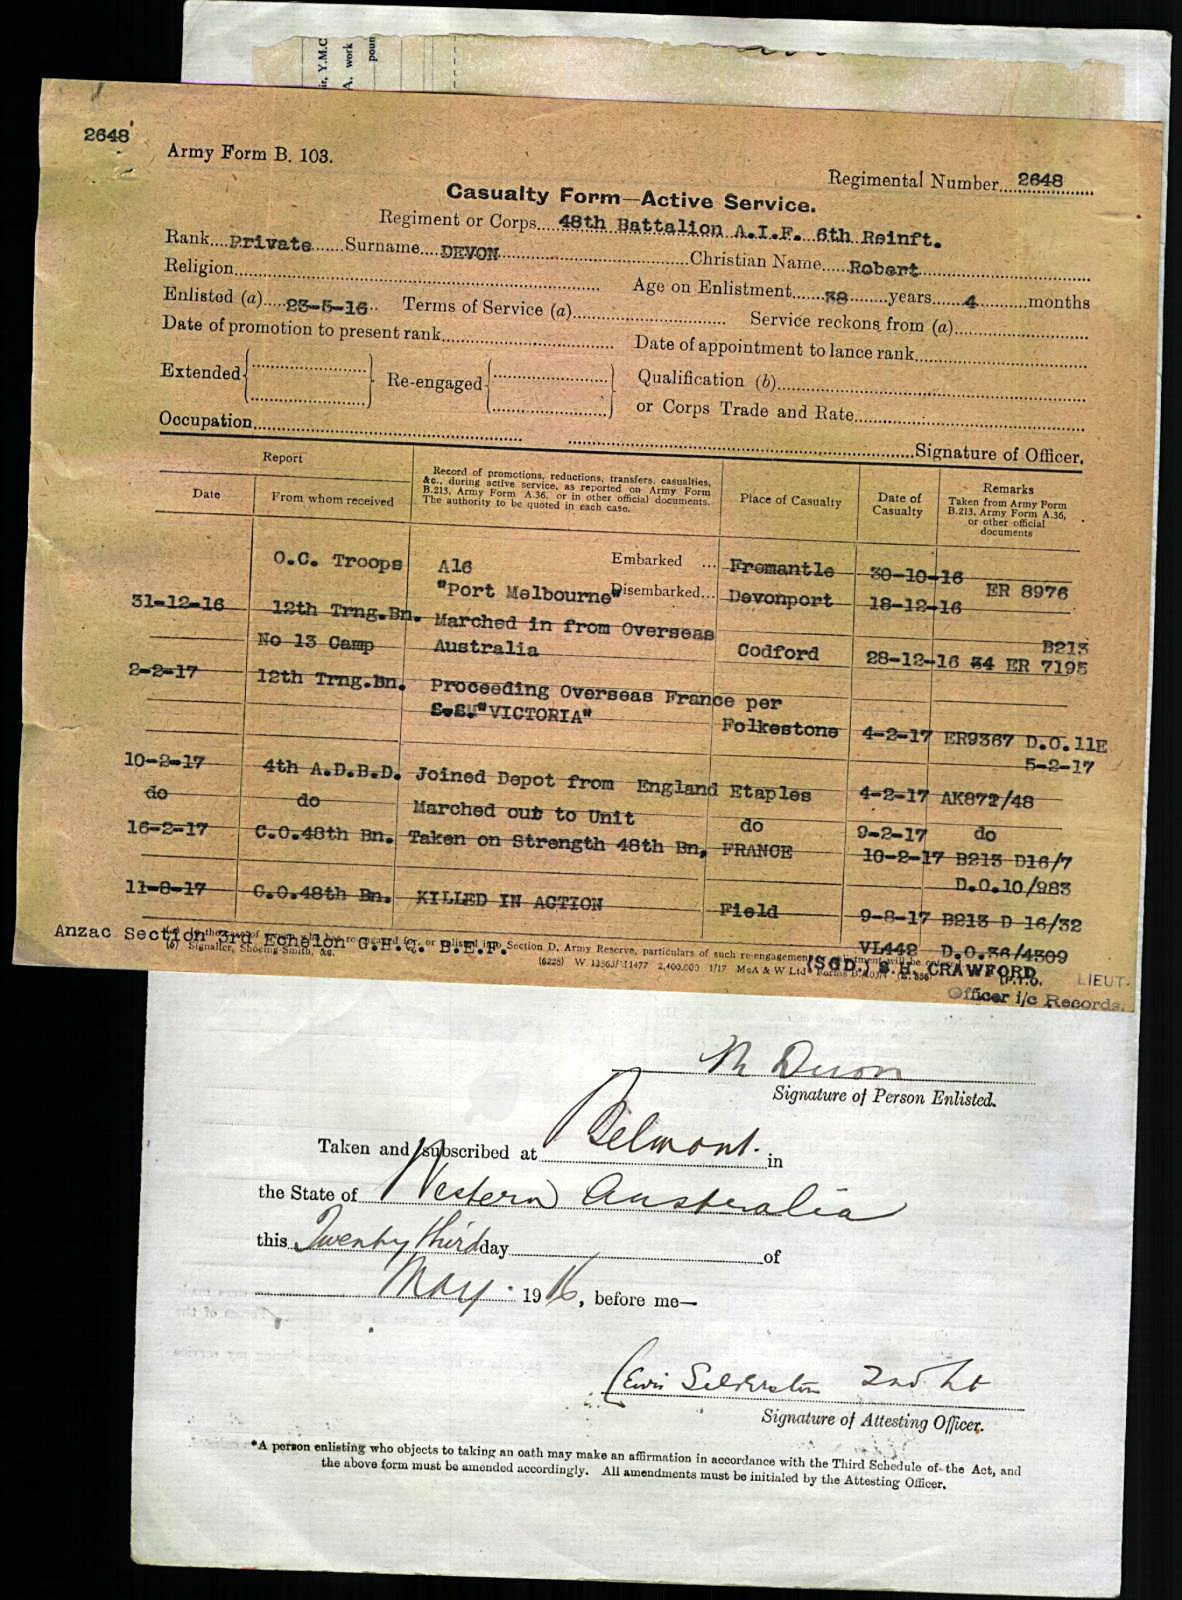 ir, Y.M.C
A. work
poun
2648
Army Form B. 103.
Regimental Number 2648
Casualty Form—Active Service.
Regiment or Corps 48th Battalion A.I.F. 6th Reinft.
Rank Private Surname DEVON Christian Name Robert
Religion Age on Enlistment 38 years 4 months
Enlisted (a) 23-5-16 Terms of Service (a) Service reckons from (a)
Date of promotion to present rank Date of appointment to lance rank
Extended Re-engaged Qualification (b)
or Corps Trade and Rate
Occupation Signature of Officer.
Report
Date From whom received
Record of promotions, reductions, transfers, casualties,
&c., during active service, as reported on Army Form
B.213, Army Form A.36, or in other official documents.
The authority to be quoted in each case.
Place of Casualty
Date of
Casualty
Remarks
Taken from Army Form
B.213, Army Form A.36,
or other official
documents
O.C. Troops A16 Embarked ... Fremantle 30-10-16 ER 8976
"Port Melbourne" Disembarked... Devonport 18-12-16
31-12-16 12th Trng.Bn. Marched in from Overseas B213
No 13 Camp Australia Codford 28-12-16 34 ER 7195
2-2-17 12th Trng.Bn. Proceeding Overseas France per
S.S."VICTORIA" Folkestone 4-2-17 ER9367 D.O.11E
5-2-17
10-2-17 4th A.D.B.D. Joined Depot from England Etaples 4-2-17 AK872/48
do do Marched out to Unit do 9-2-17 do
16-2-17 C.O.48th Bn. Taken on Strength 48th Bn, FRANCE 10-2-17 B213 D16/7
D.O.10/983
11-8-17 C.O.48th Bn. KILLED IN ACTION Field 9-8-17 B213 D 16/32
VL442 D.O.36/4309
Anzac Section 3rd Echelon G.H.Q. B.E.F.
Section D, Army Reserve, particulars of such re-engagement
(b) Signaller, Shoeing Smith, &c.
(6225) 2,400,000 1/17 McA & W Ltd
(SGD.) S.H. CRAWFORD LIEUT.
(P.T.O.
Officer i/c Records.
Signature of Person Enlisted.
Taken and subscribed at Belmont. in
the State of Western Australia
this Twenty third day of
May. 1916, before me—
2nd Lt
Signature of Attesting Officer.
*A person enlisting who objects to taking an oath may make an affirmation in accordance with the Third Schedule of the Act, and
the above form must be amended accordingly. All amendments must be initialed by the Attesting Officer.